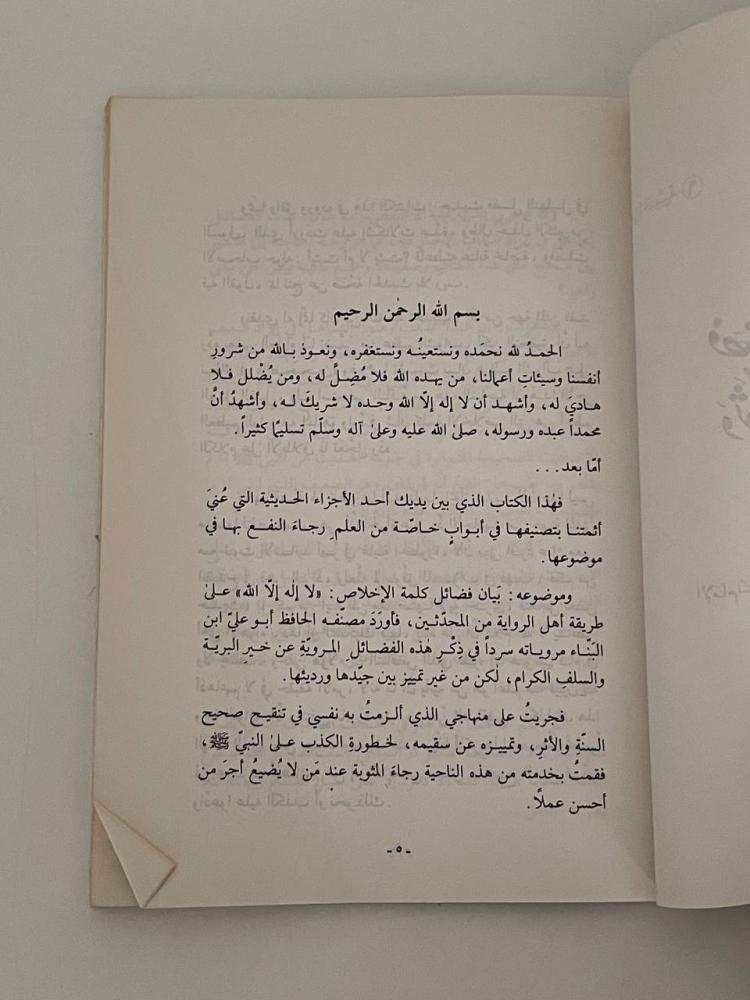 بسم الله الرحمٰن الرحيم
الحمدُ لله نحمَده ونستعينُه ونستغفره، ونعوذ بالله من شرورِ
أنفسنا وسيئاتِ أعمالنا، من يهده الله فلا مُضِلَّ له، ومن يُضْلل فلا
هاديَ له، وأشهد أن لا إله إلّا الله وحده لا شريكَ له، وأشهدُ أنَّ
محمداً عبده ورسوله، صلىٰ الله عليه وعلىٰ آله وسلّم تسليمًا كثيراً.
أمّا بعد...
فهٰذا الكتاب الذي بين يديك أحد الأجزاء الحديثية التي عُنيَ
أئمتنا بتصنيفها في أبوابٍ خاصّة من العلم رجاءَ النفع بها في
موضوعها.
وموضوعه: بَيان فضائل كلمة الإخلاص: «لا إلٰه إلّا الله» علىٰ
طريقة أهل الرواية من المحدّثين، فأورَدَ مصنّفه الحافظ أبو عليّ ابن
البَنّاء مروياته سرداً في ذِكْرِ هٰذه الفضائل المرويّةِ عن خيرِ البريّة
والسلفِ الكرام، لٰكن من غير تمييز بين جيّدها ورديئها.
فجريتُ على منهاجي الذي ألزمتُ به نفسي في تنقيح صحيح
السنّةِ والأثرِ، وتمييزه عن سقيمه، لخطورةِ الكذب علىٰ النبيّ ﷺ،
فقمتُ بخدمته من هذه الناحية رجاءَ المثوبة عند مَن لا يُضيعُ أجرَ من
أحسن عملًا.
- ٥ -